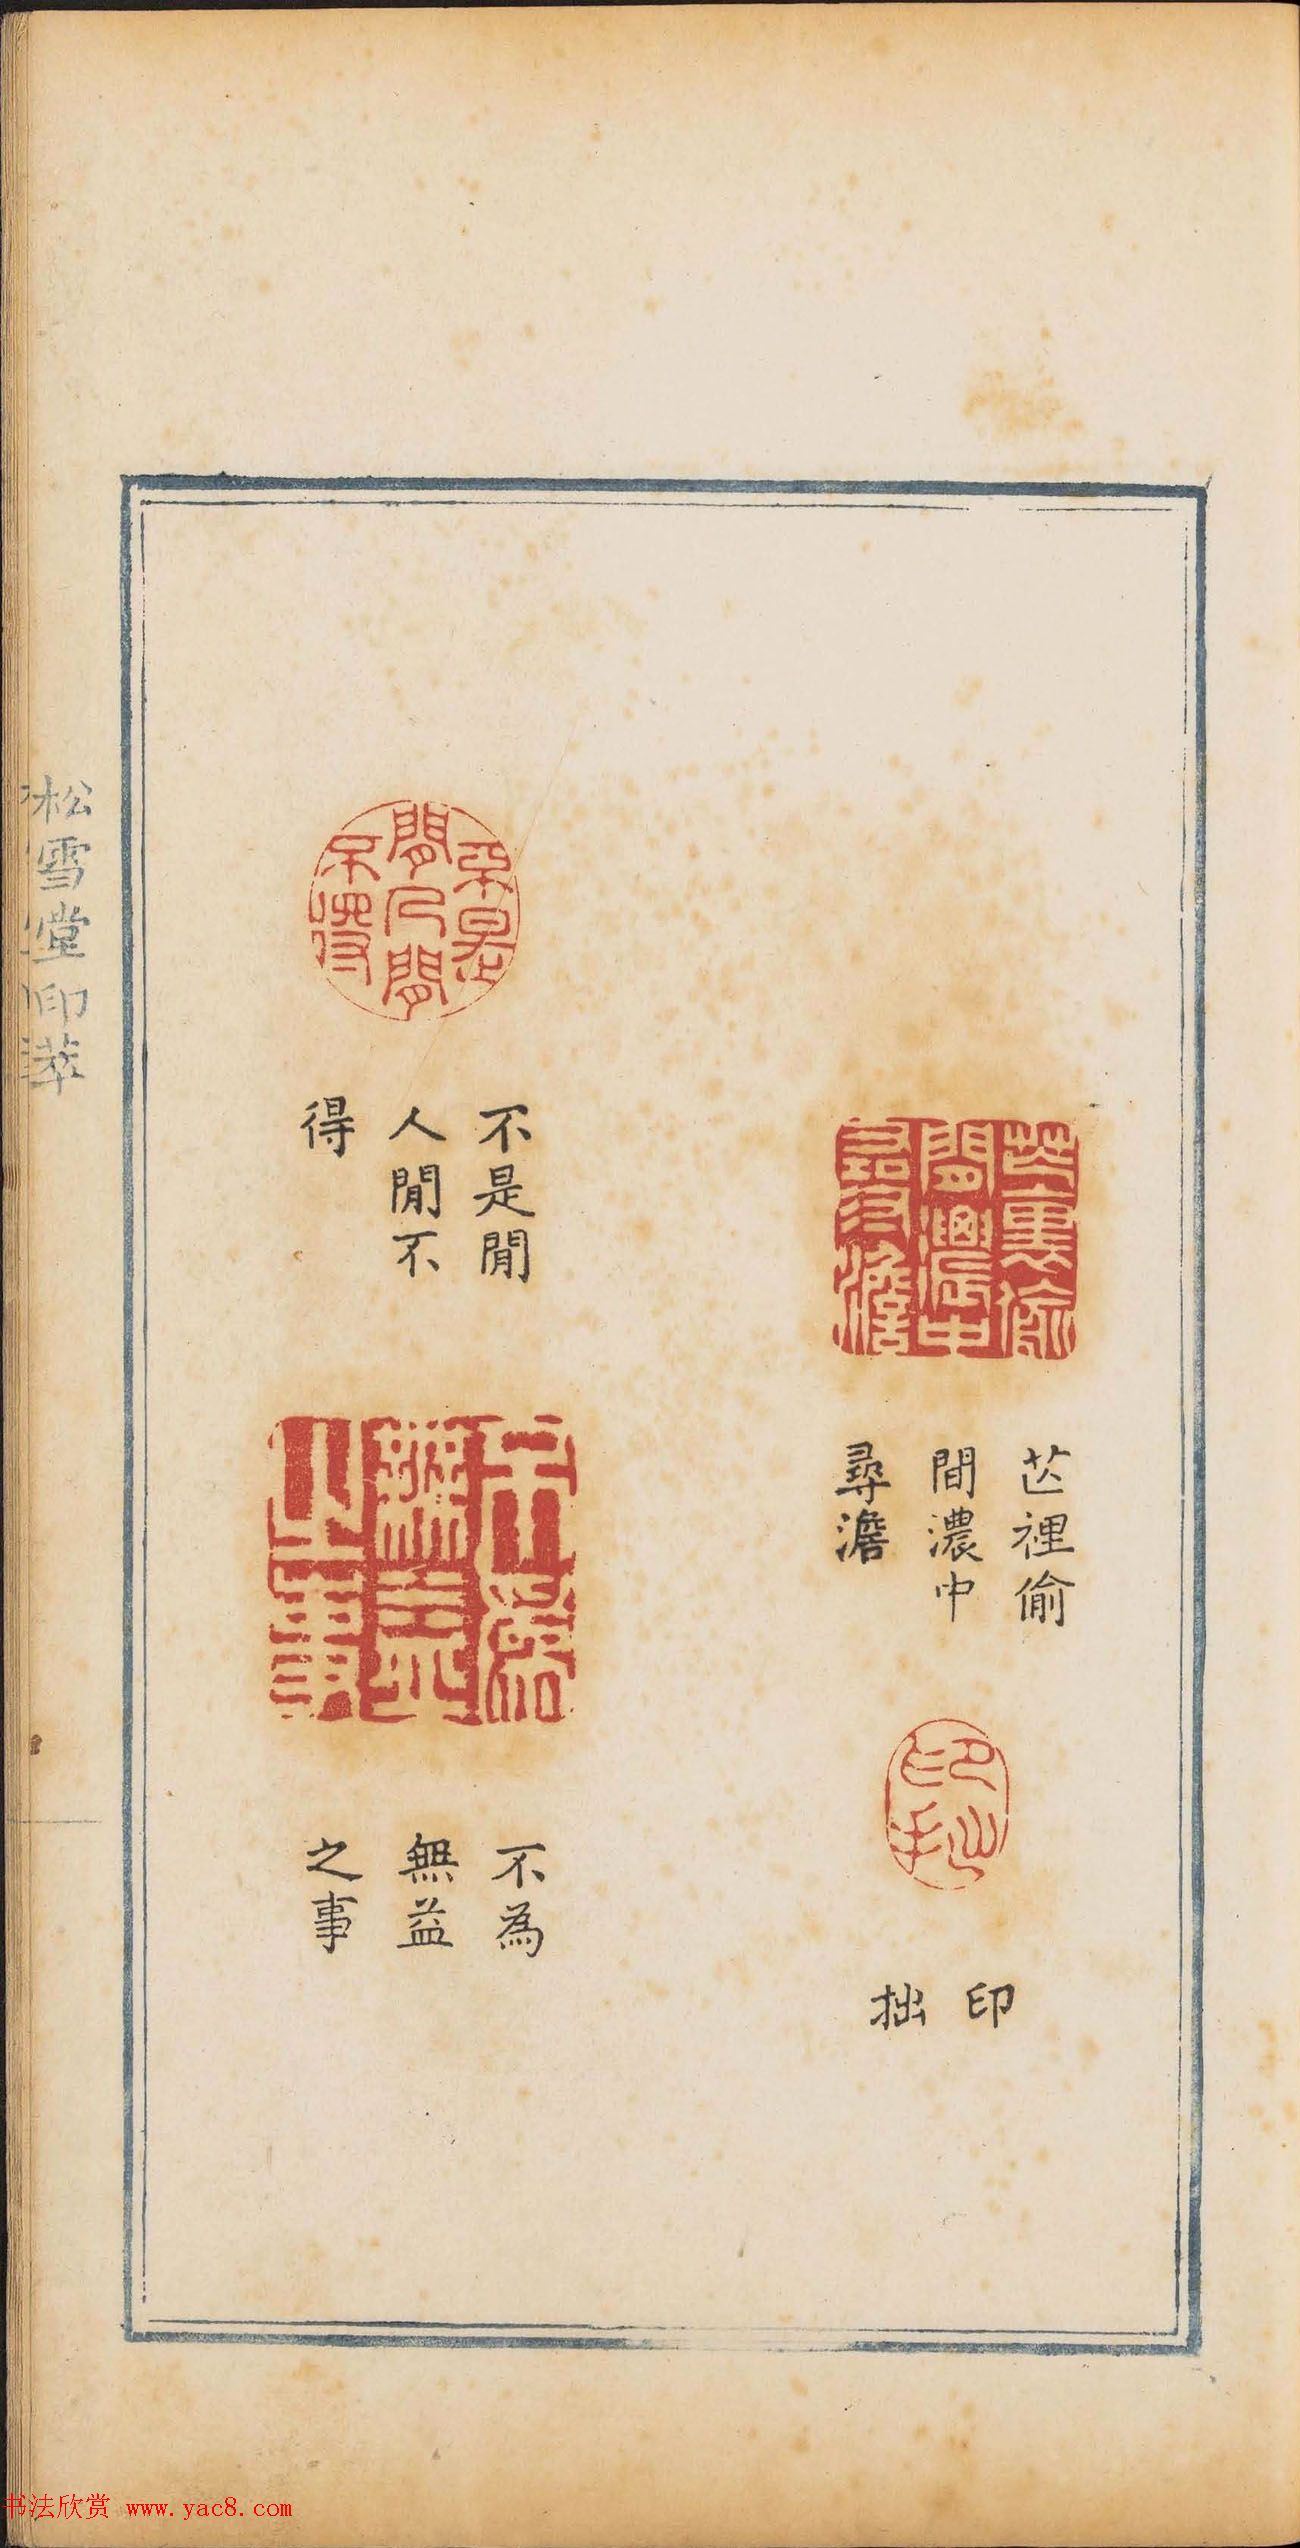 芒裡偷
間濃中
尋澹
印
拙
不是閒
人閒不
得
不為
無益
之事
松雪堂印萃
书法欣赏 www.yac8.com